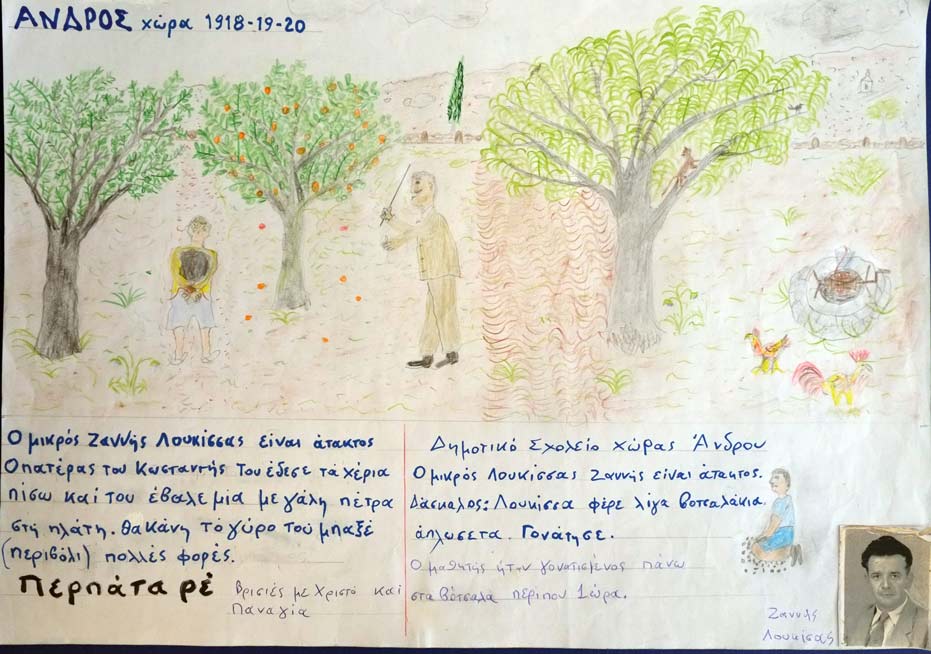 ΑΝΔΡΟΣ χώρα 1918-19-20
Ο μικρός Ζαννής Λουκίσσας είναι άτακτος
Ο πατέρας του Κωσταντής Του έδεσε τά χέρια
πίσω και του έβαλε μια μεγάλη πέτρα
στη πλάτη. θα κάνη τό γύρο του μπαξέ
(περιβόλι) πολλές φορές.
Περπάτα ρέ
βρισιές με Χριστό και
Παναγία
Δημοτικό Σχολείο χώρας Άνδρου
Ο μικρός Λουκίσσας Ζαννής είναι άτακτος.
Δάσκαλος: Λουκίσσα φέρε λίγα βοτσαλάκια
άπλωσετα. Γονάτησε.
Ο μαθητής ήταν γονατισμένος πάνω
στα βότσαλα πέριπου 1 ώρα.
Ζαννής
Λουκίσας